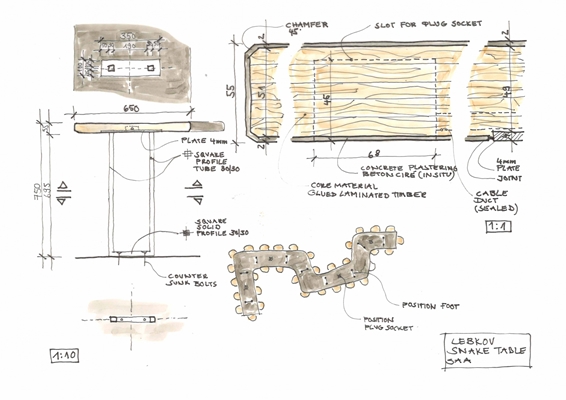 CHAMFER
45°
SLOT FOR PLUG SOCKET
650
55
51
2
2
45
68
2
49
2
PLATE 4mm
SQUARE
PROFILE
TUBE 30/30
CONCRETE PLASTERING
BETON CIRE (IN SITU)
CORE MATERIAL
GLUED LAMINATED TIMBER
4mm
PLATE
JOINT
CABLE
DUCT
(SEALED)
1:1
750
695
SQUARE
SOLID
PROFILE 30/30
COUNTER
SUNK BOLTS
POSITION FOOT
POSITION
PLUG SOCKET
1:10
LEBKOV
SNAKE TABLE
JAA